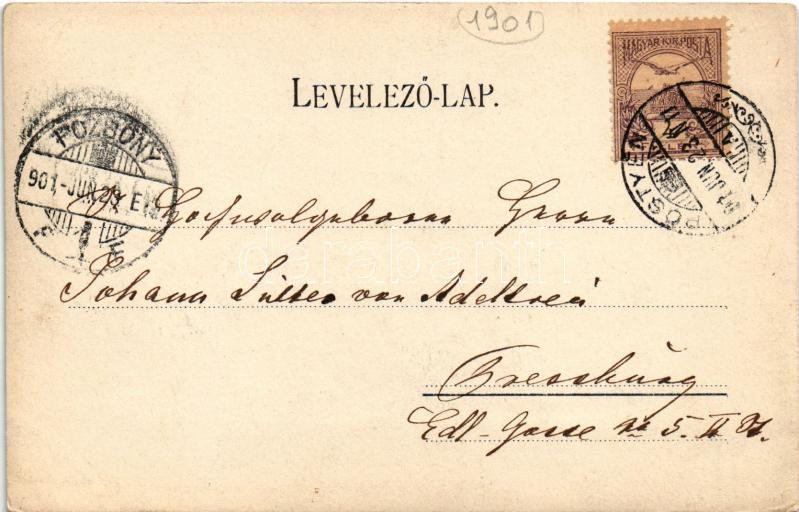 1901
MAGYAR KIR. POSTA
LEVELEZŐ-LAP.
POZSONY
901-JUN.23
PÖSTYÉN
Hochwolgeboren Herrn
Johann von
Pressburg
Edl-Gasse No 5. II St.
darabanth